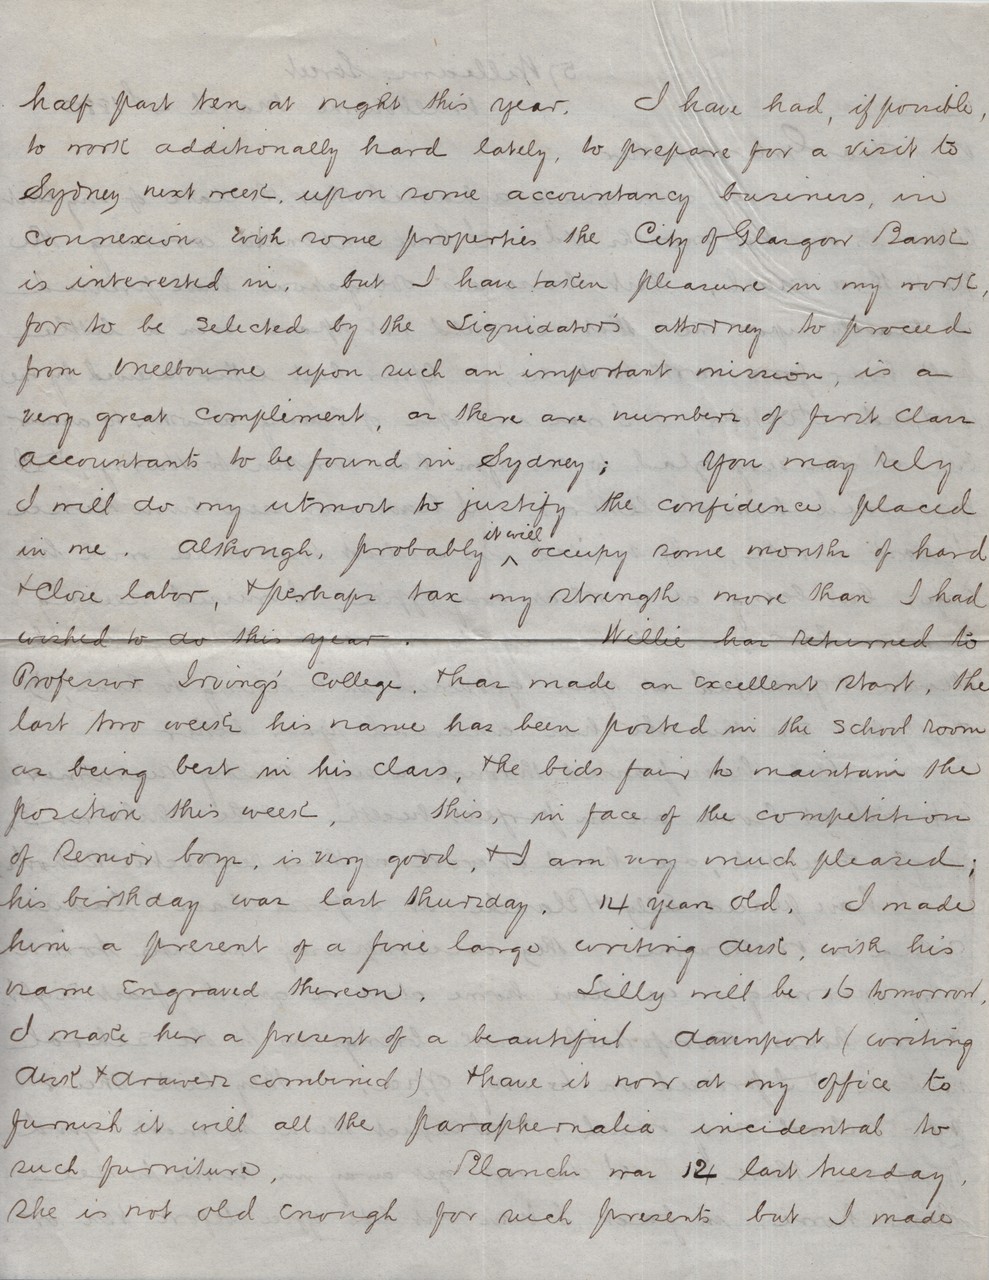 half past ten at night this year. I have had, if possible,
to work additionally hard lately, to prepare for a visit to
Sydney next week, upon some accountancy business, in
connexion with some properties the City of Glasgow Bank
is interested in, but I have taken pleasure in my work,
for to be selected by the Liquidator's attorney to proceed
from Melbourne upon such an important mission, is a
very great compliment, as there are numbers of first class
accountants to be found in Sydney; You may rely
I will do my utmost to justify the confidence placed
in me. Although, probably it will occupy some months of hard
& close labor, & perhaps tax my strength more than I had
wished to do this year. Willie has returned to
Professor Irving's College, & has made an excellent start, the
last two week his name has been posted in the school room
as being best in his class, & he bids fair to maintain the
position this week, this, in face of the competition
of senior boys, is very good, & I am very much pleased;
his birthday was last thursday, 14 years old. I made
him a present of a fine large writing desk, with his
name engraved thereon. Lilly will be 16 tomorrow,
I make her a present of a beautiful davenport (writing
desk & drawers combined) & have it now at my office to
furnish it with all the paraphernalia incidental to
such furniture, Blanch was 12 last tuesday,
she is not old enough for such presents but I made